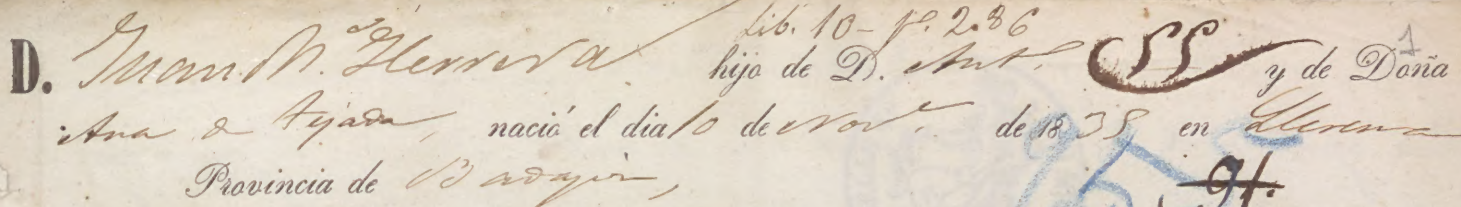 Lib. 10 - f. 286
D. Juan M.ª Herrera hijo de D. Ant.º 55 y de Doña 1
Ana de Tejada, nació el dia 10 de Nov.e de 1835 en Llerena
Provincia de Badajoz, 91.